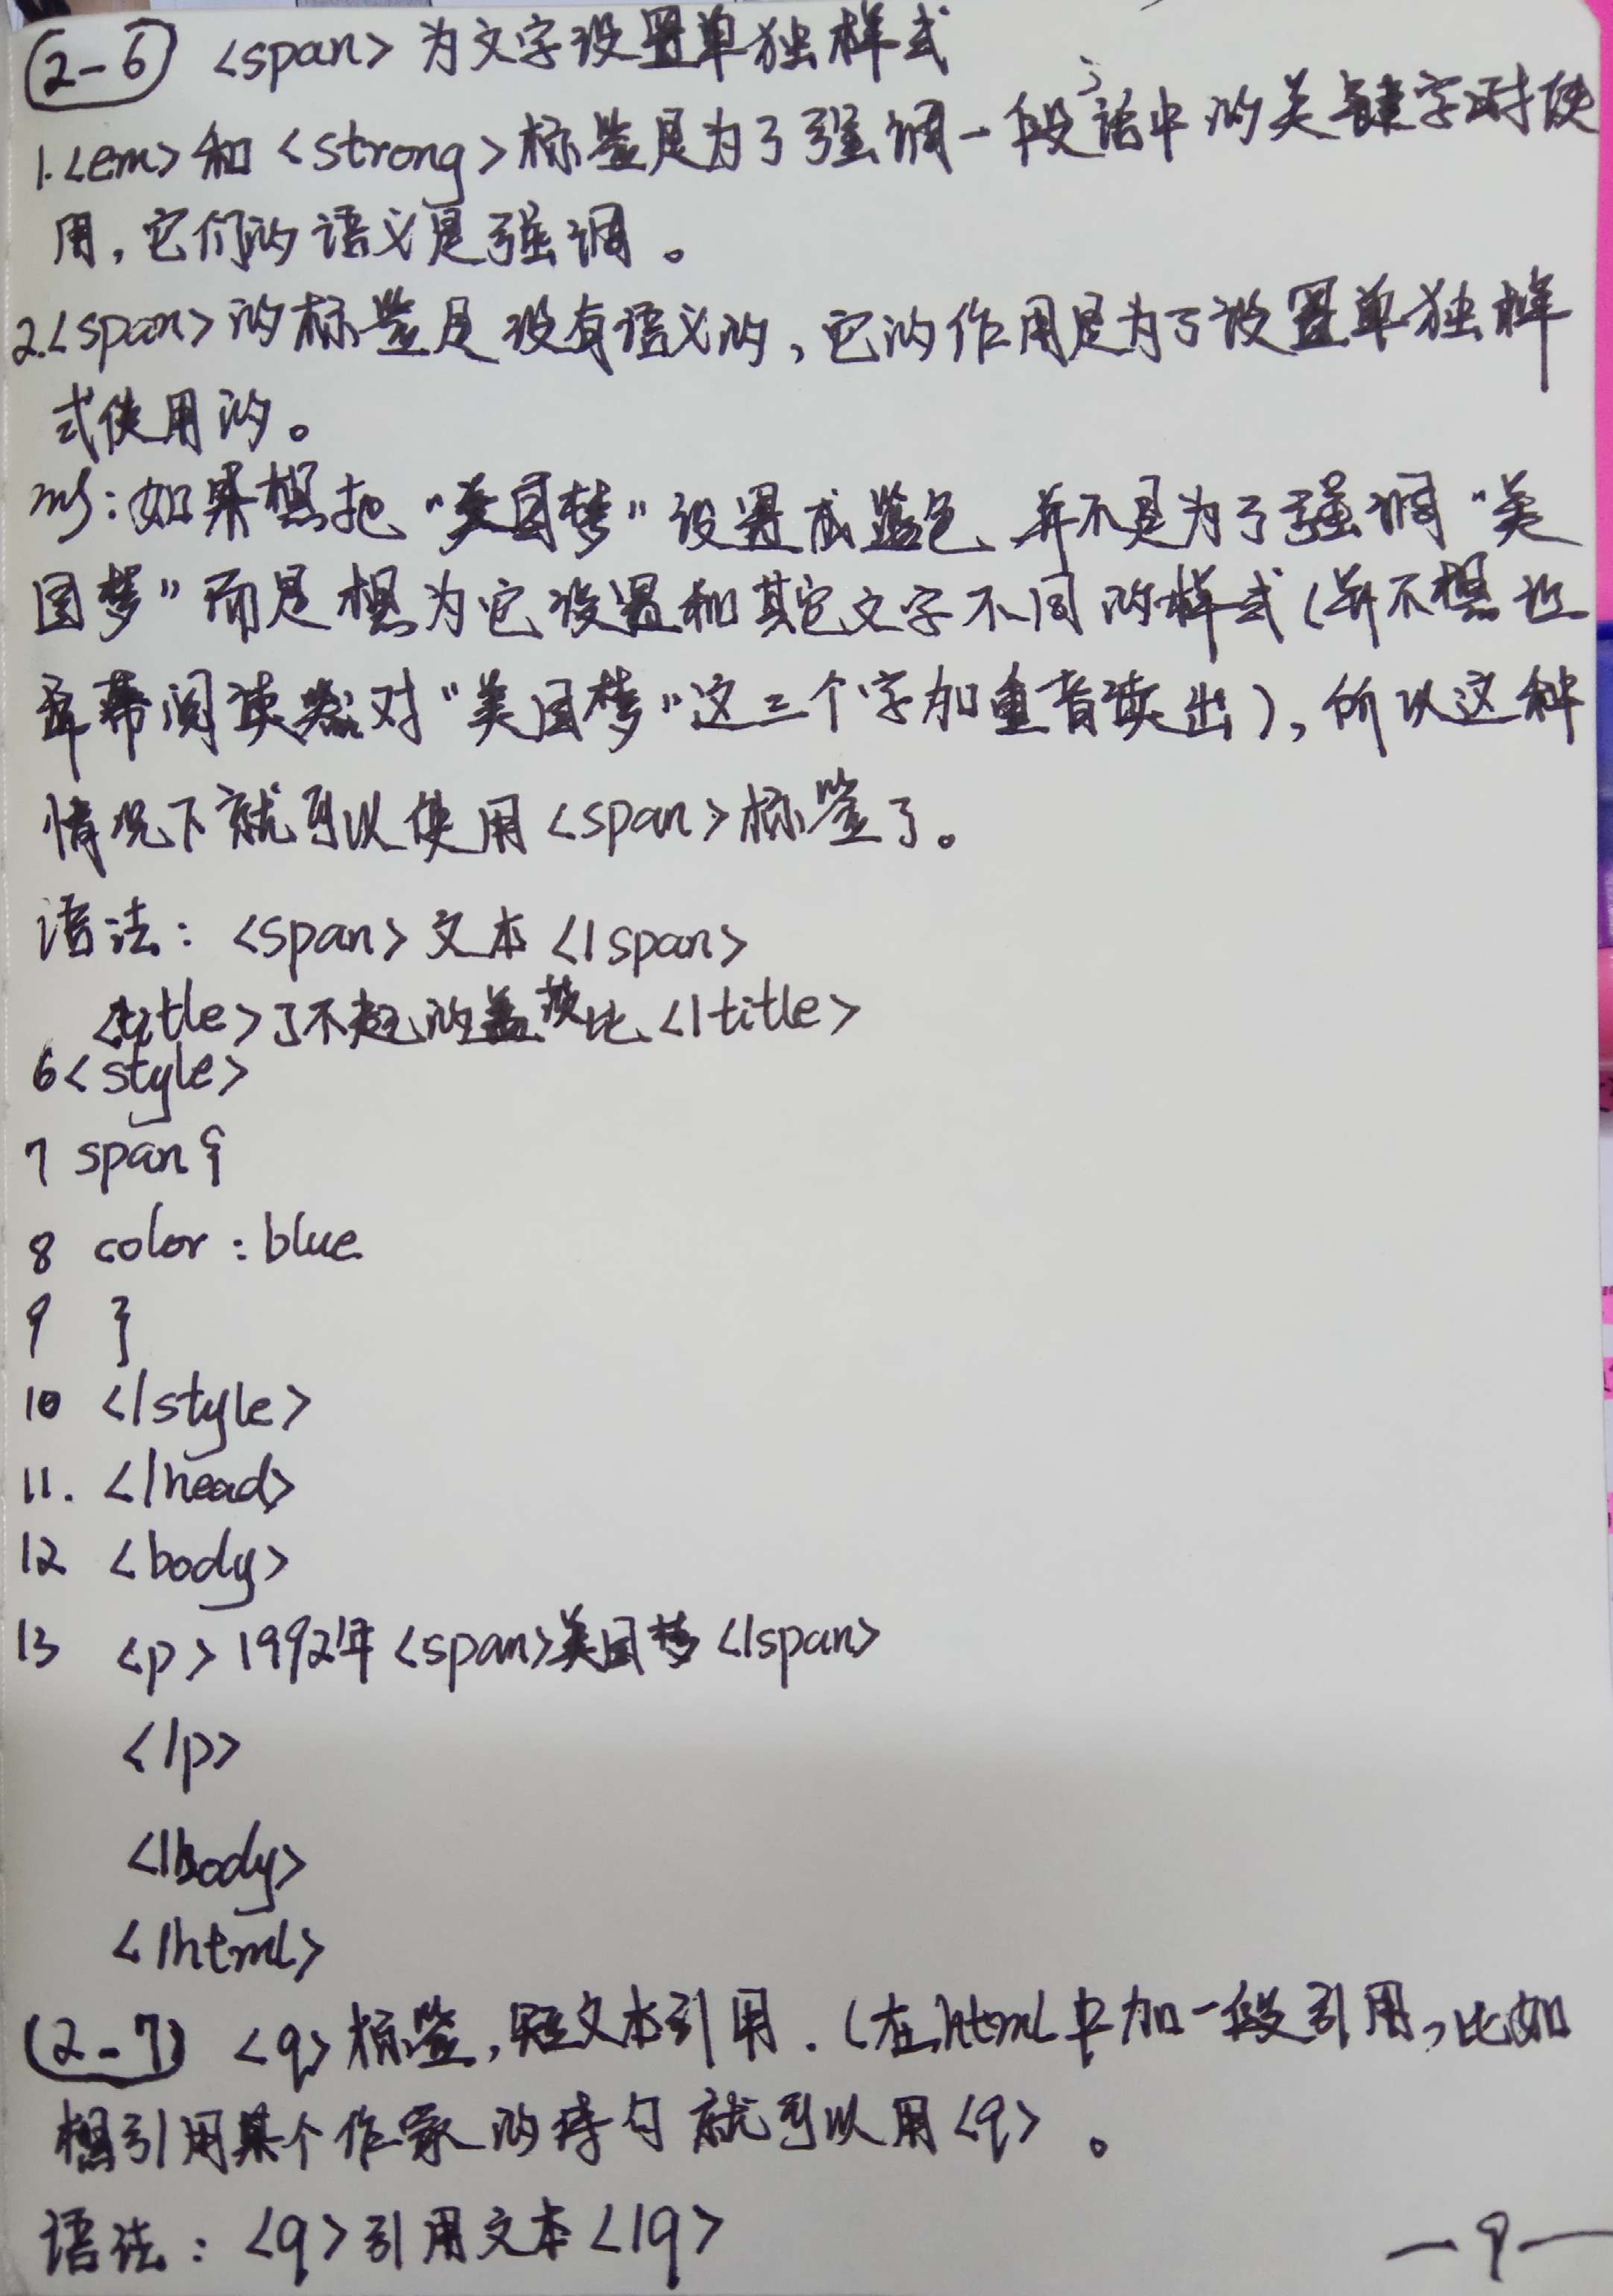 2-6 <span>为文字设置单独样式
1.<em>和<strong>标签是为了强调一段话中的关键字时使
用,它们的语义是强调。
2.<span>的标签是没有语义的,它的作用是为了设置单独样
式使用的。
如果想把“美国梦”设置成蓝色,并不是为了强调“美
国梦”而是想为它设置和其它文字不同的样式(并不想让
屏幕阅读器对“美国梦”这三个字加重音读出),所以这种
情况下就可以使用<span>标签了。
语法:<span>文本</span>
<title>了不起的盖茨比</title>
6<style>
7 span{
8 color:blue
9 }
10 </style>
11. </head>
12 <body>
13 <p>1992年<span>美国梦</span>
</p>
</body>
</html>
(2-7) <q>标签,短文本引用.(在html中加一段引用,比如
想引用某个作家的诗句就可以用<q>。
语法:<q>引用文本</q>
—9—